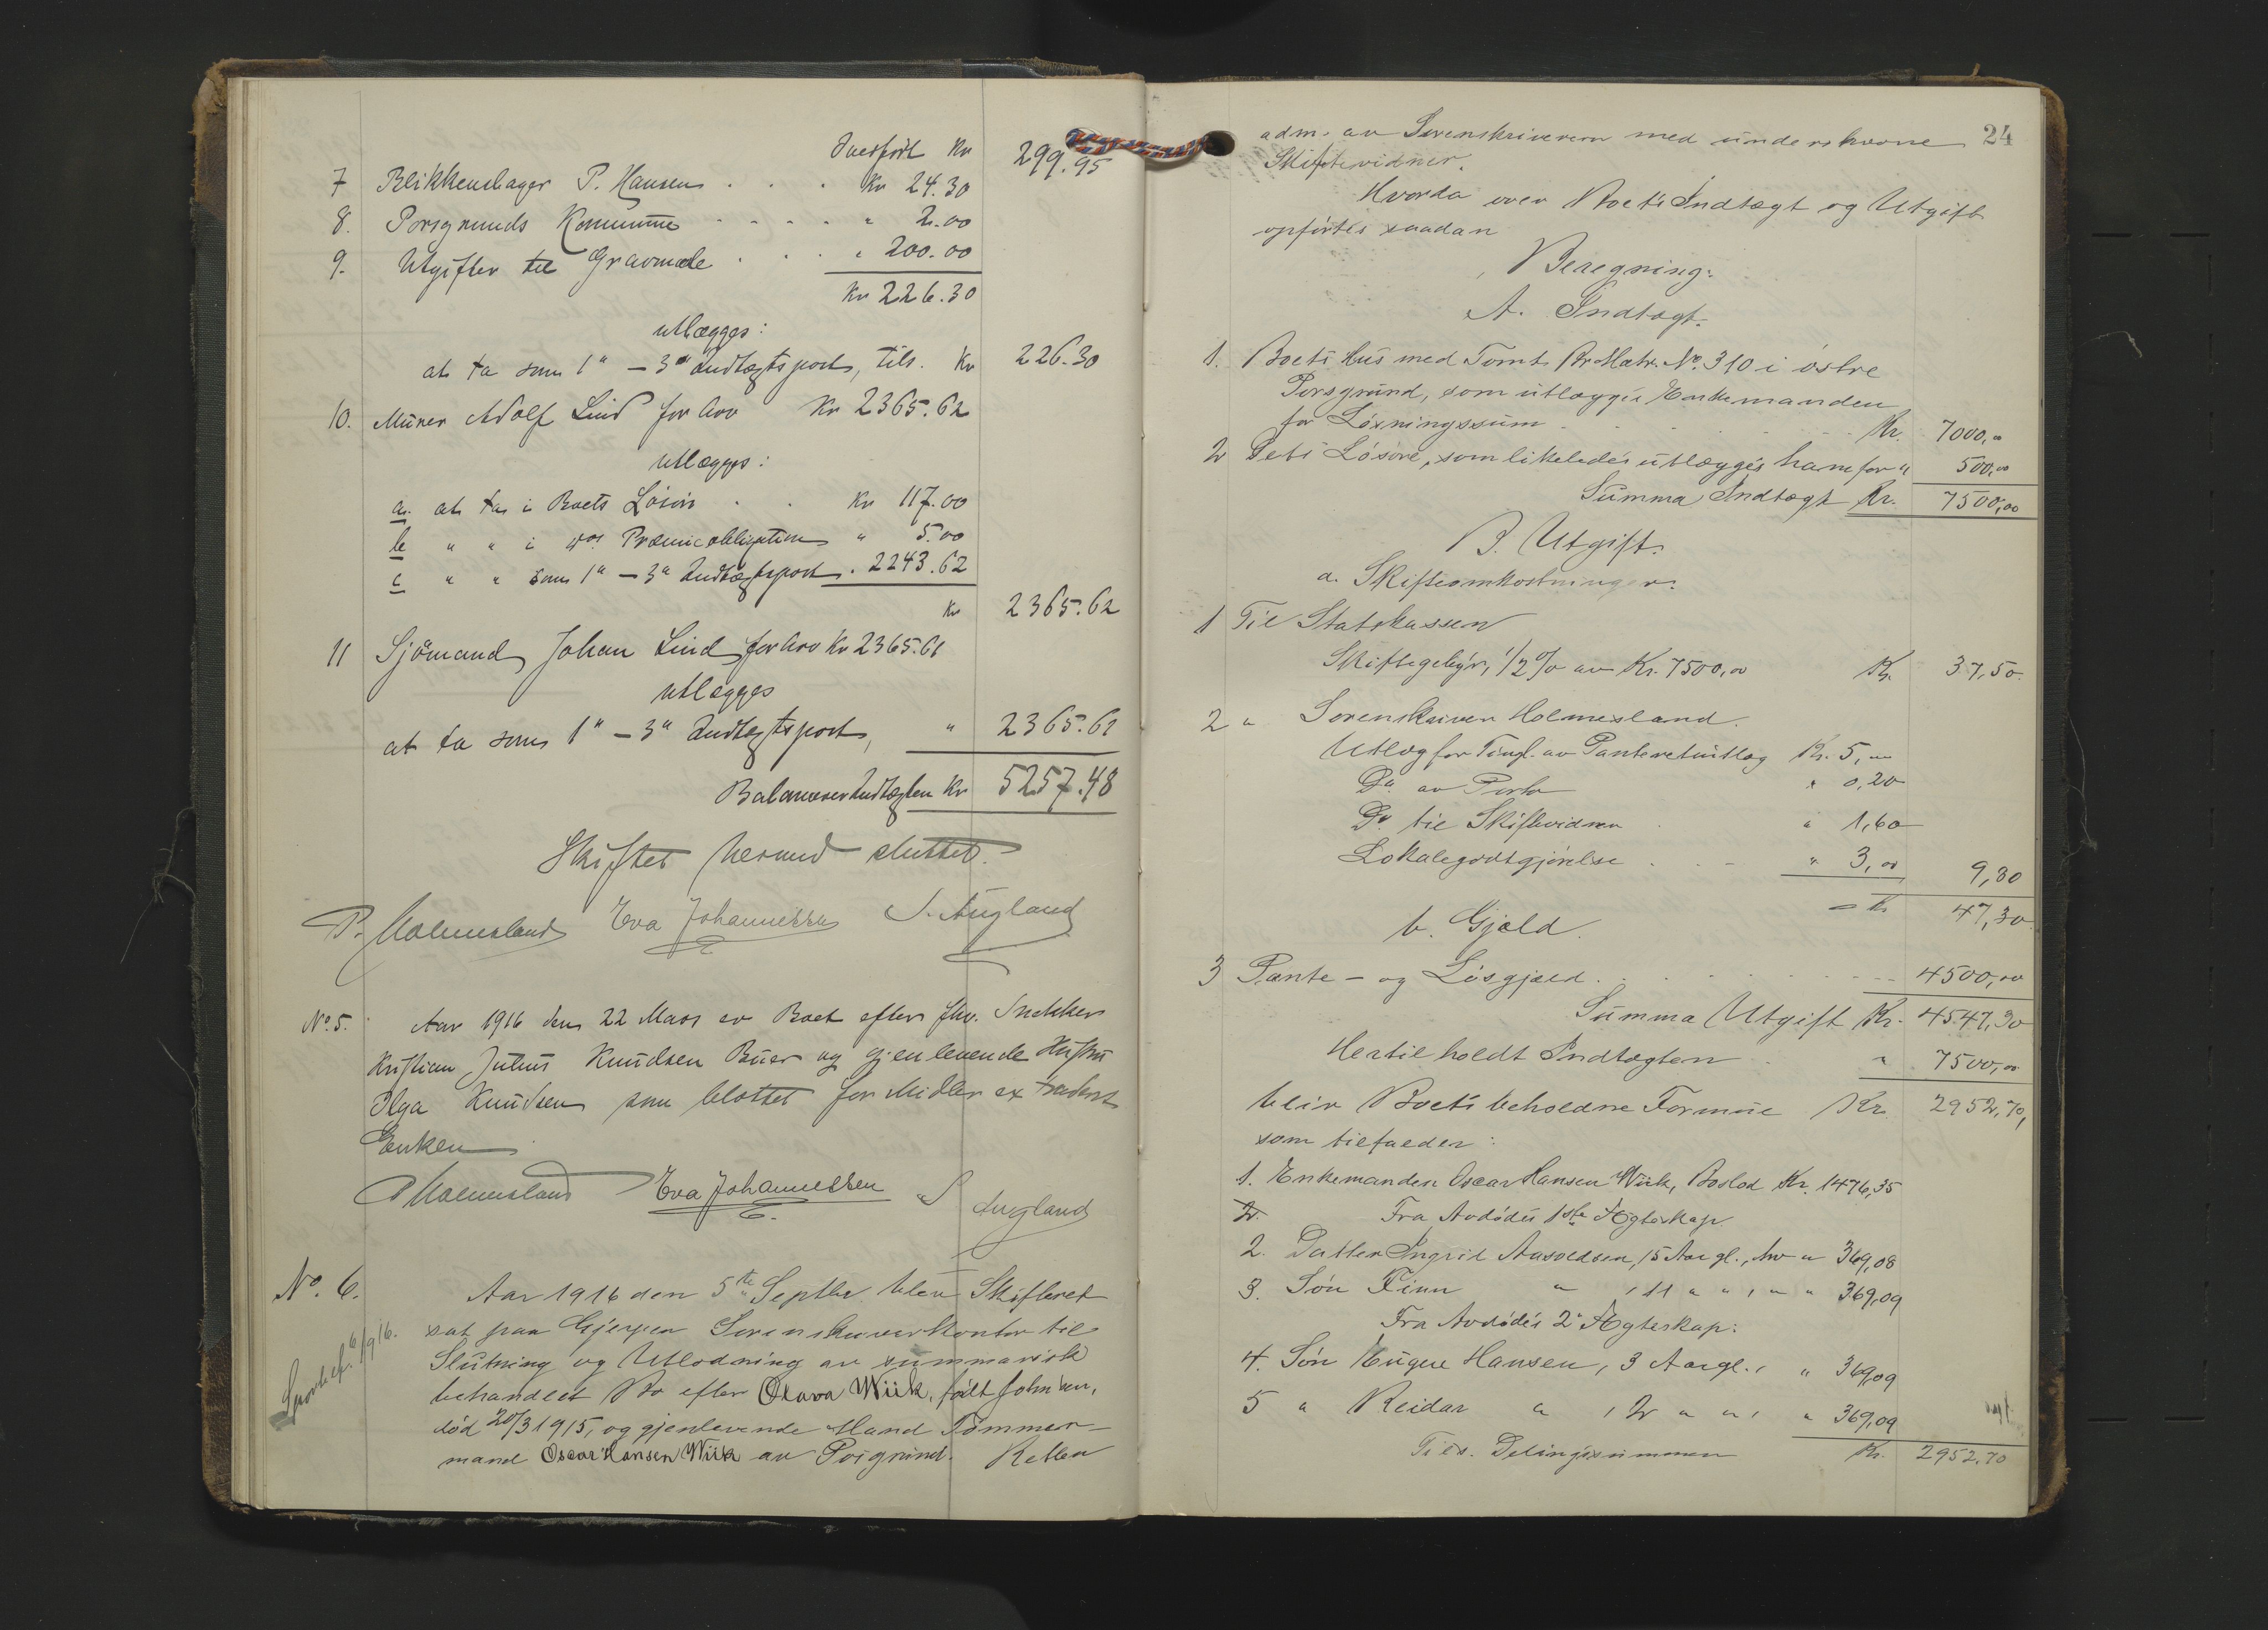 Overført Kr 299.95
7 Blikkenslager P. Hansen . . . Kr 24.30
8. Porsgrunds Kommune - - - - - " 2.00
9. Utgifter til Gravmæle . . . " 200.00
Kr 226.30
utlægges:
at ta som 1" - 3" Indtægtspost, tils. Kr 226.30
10. Murer Adolf Lind for Arv Kr 2365.62
utlægges:
a. at ta i Boets Løsøre . . Kr 117.00
b " " i do. Præmieobligation " 5.00
c " " som 1a - 3a Indtægtspost . 2243.62
Kr 2365.62
11 Sjømand Johan Lind for Arv Kr 2365.61
utlægges
at ta som 1" - 3" Indtægtspost, " 2365.61
Balancerer Indtægten Kr 5257.48
Skiftet hermed sluttet.
P. Holmesland Eva Johannessen S. Augland
No. 5. Aar 1916 den 22 Mars er Boet efter fhv. Snekker
Kristian Julius Knudsen Buer og gjenlevende Hustru
Olga Knudsen som blottet for Midler extraderet
Enken
P Holmesland Eva Johannessen S Augland
No. 6. Aar 1916 den 5te Septbr. blev Skifteret
sat paa Gjerpen Sorenskriverkontor til
Slutning og Utlodning av summarisk
behandlet Bo efter Olava Wiik, født Johnsen,
død 20/3 1915, og gjenlevende Mand Tømmer-
mand Oscar Hansen Wiik av Porsgrund. Retten
6/9 16.
24
adm. av Sorenskriveren med underskrevne
Skiftevidner.
Hvorda over Boets Indtægt og Utgift
opførtes saadan
Beregning:
A. Indtægt.
1. Boets Hus med Tomt Br. Matr. No. 310 i østre
Porsgrund, som utlægges Enkemanden
for Løsningssum . . . . . Kr. 7000,00
2 Dets Løsøre, som likeledes utlægges ham for " 500,00
Summa Indtægt Kr. 7500,00
B. Utgift.
a. Skifteomkostninger.
1 Til Statskassen
Skiftegebyr, 1/2 % av Kr. 7500,00 Kr. 37,50.
2 " Sorenskriver Holmesland.
Utlæg for Tingl. av Panteretsutlæg Kr. 5,00
Do av Porto " 0,20
Do til Skiftevidner . " 1,60
Lokalegodtgjørelse . . - " 3,00 9,80
= Kr 47,30
b. Gjæld.
3 Pante- og Løsgjæld . . . . . - - - 4500,00
Summa Utgift Kr. 4547,30
Hertil holdt Indtægten . " 7500,00
blir Boets beholdne Formue Kr. 2952,70,
som tilfalder:
1. Enkemanden Oscar Hansen Wiik, Boslod Kr. 1476,35
2. Fra Avdødes 1ste Ægteskap.
2. Datter Ingrid Aasoldsen, 15 Aar gl., Arv " 369,08
3. Søn Finn " , 11 " " , " " 369,09
Fra Avdødes 2' Ægteskap:
4. Søn Eugen Hansen, 3 Aar gl., " 369,09
5 " Reidar " , 2 " " , " 369,09
Tils. Delingssummen Kr. 2952,70